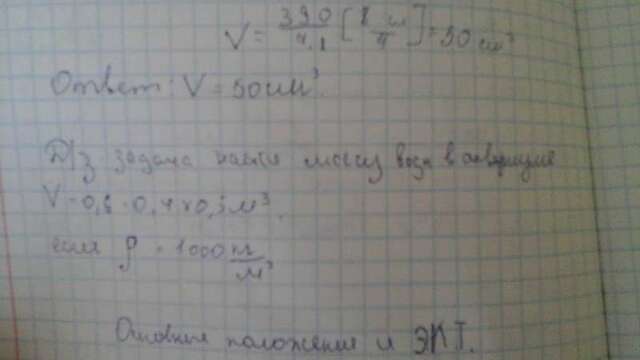 V = 390/7,8 [г см³/г] = 50 см³
Ответ: V = 50 см³.
Д/з. Задача найти массу воды в аквариуме
V = 0,6 · 0,4 × 0,3 м³.
если ρ = 1000 кг/м³
Основные положения и ЭКТ.